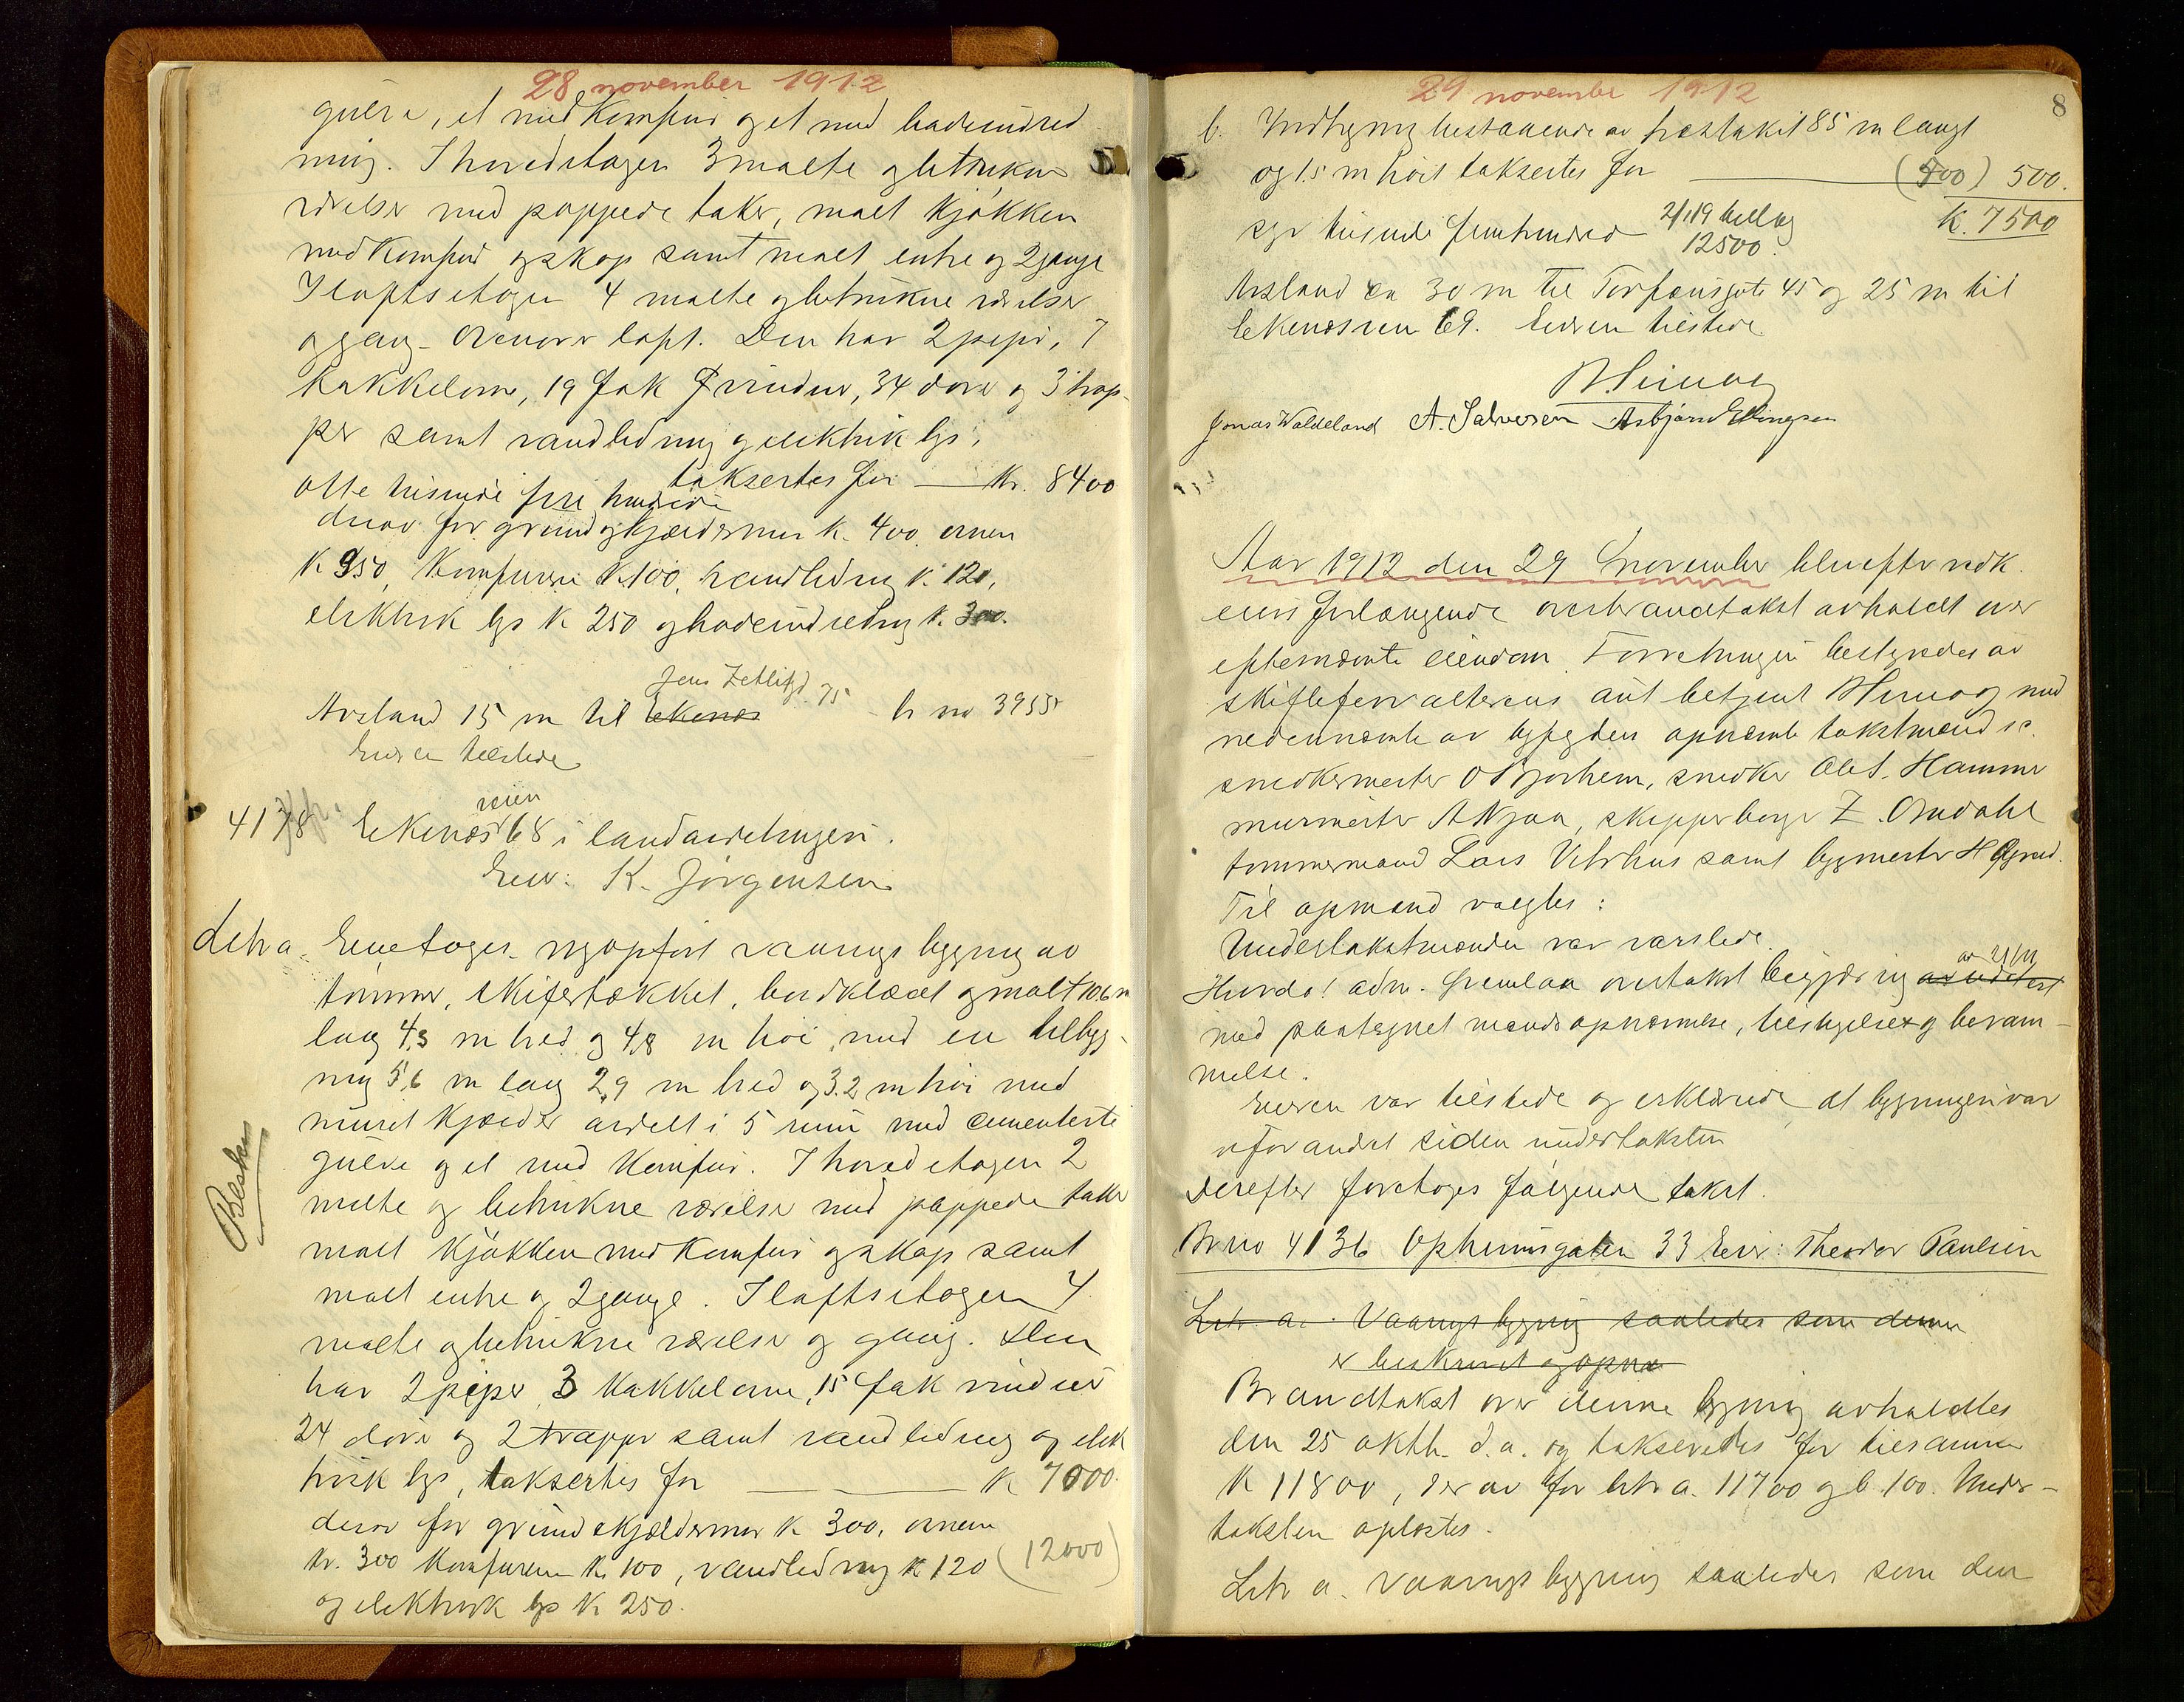 28 november 1912
gulve, et med Komfur og et med badeindred
ning. I hovedetagen 3 malte og betrukne
værelser med pappede taker, malt Kjøkken
med Komfur og skap samt malt entre og 2 gange
I loftsetagen 4 malte og betrukne værelser
og gang. Ovenover loft. Den har 2 piper, 7
kakkelovne, 19 fak vinduer, 34 døre og 3 trap-
per samt vandledning og elektrik lys,
taksertes for — Kr. 8400
otte tusinde fire hundrede
derav for grund og kjældermur K. 400. ovnen
K 950, Komfurene K. 100, vandledning K. 120,
elektrisk lys K 250 og badeindredning K. 300.
Jens Zetlitzgt. 75
Avstand 15 m til Ekenæs br no 3955
Eieren tilstede
4178 Ekenæsveien 68 i landavdelingen.
Eier: K. Jörgensen
Litra a. Eneetages nyopfört vaanings bygning av
tømmer, skifertækket, bordklædt og malt 10.6 m
lang 4,3 m bred og 4,8 m høi med en tilbyg-
ning 5,6 m lang 2,9 m bred og 3.2 m høi med
muret Kjælder avdelt i 5 rum med cementerte
gulve og et med Komfur. I hovedetagen 2
malte og betrukne værelser med pappede taker
malt Kjøkken med Komfur og skap samt
malt entre og 2 gange. I loftsetagen 4
malte og betrukne værelser og gang. Den
har 2 piper 3 Kakkelovne, 15 fak vinduer
24 döre og 2 trapper samt vandledning og elek
trisk lys, taksertes for — K 7000.
derav for grund & kjældermur K 300, ovnene
Kr. 300 Komfuren K. 100, vandledning K 120 (12000)
og elektrisk lys K 250.
29 november 1912
8
b. Indhegning bestaaende av stakit 85 m langt
og 1.5 m høit taksertes for — (500) 500.
K. 7500
syv tusinde femhundred 2/1 19 tillæg
12500.
Avstand ca 30 m til Torfæusgate 45 og 25 m til
Ekenæsveien 69. Eieren tilstede
Jonas Waldeland A. Salvesen Asbjörn Ellingsen
Aar 1912 den 29 november blev efter vedk.
eiers forlangende overbrandtakst avholdt over
efternævnte eiendom. Forretningen bestyredes av
skifteforvalterens aut. betjent med
nedennævnte av byfogden opnævnte takstmænd
snedkermester O Bjorheim, snedker Ole T. Hamme
murmester A Njaa, skipperborger Z. Omdahl
tømmermand Lars Vetrhus samt bygmester H
Til opmand valgtes:
Undertakstmændene var varslede.
Hvorda! adm. fremlaa overtakst begjæring av 21/11
med paategnet mandsopnævnelse, bestyrelse og beram-
melse.
Eieren var tilstede og erklærede at bygningen var
uforandret siden undertaksten
Derefter foretoges følgende takst.
Br no 4136 Opheimsgaten 33 Eier: Theodor Paulsen
Litr a. Vaanings bygning saaledes som denne
er beskrevet og opna
Brandtakst over denne bygning avholdtes
den 25 oktbr. d.a. og takseredes for tilsammen
K 11800, derav for litr a. 11700 og b. 100. Under-
taksten oplæstes.
Litr a. Vaanings bygning saaledes som den